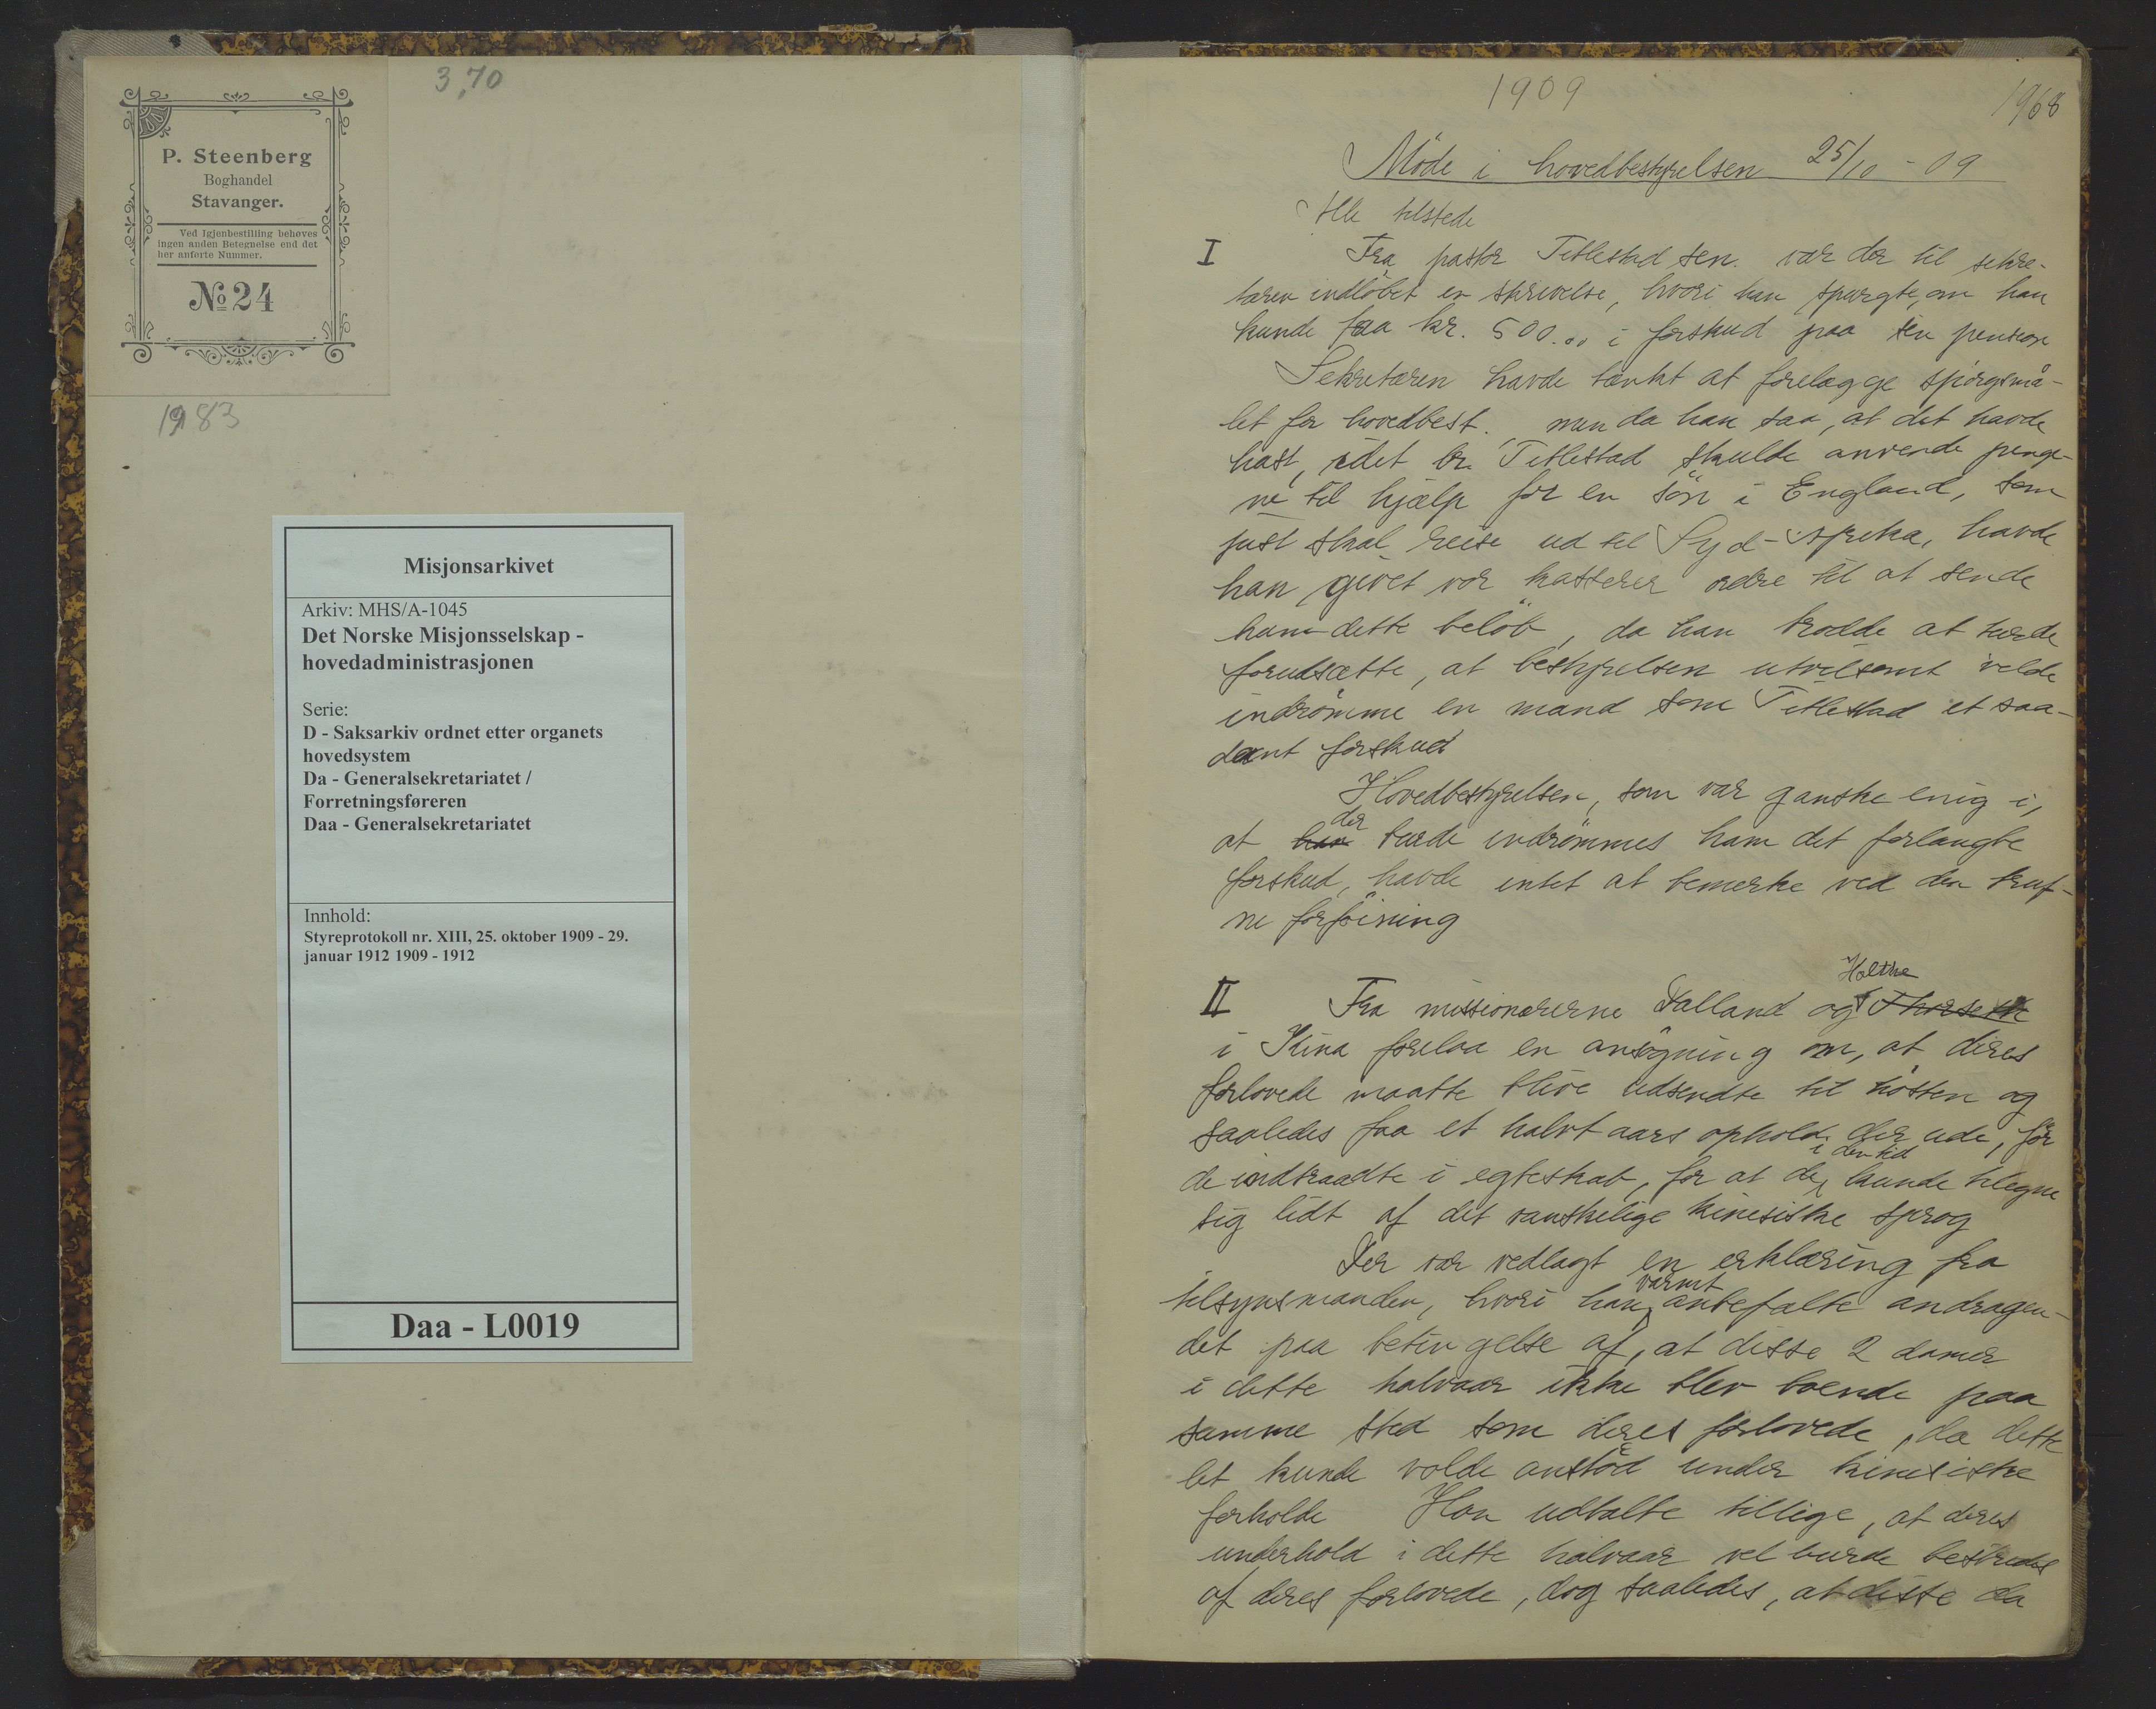 3,70
P. Steenberg
Boghandel
Stavanger.
Ved Igjenbestilling behøves
ingen anden Betegnelse end det
her anførte Nummer.
No 24
1983
Misjonsarkivet
Arkiv: MHS/A-1045
Det Norske Misjonsselskap -
hovedadministrasjonen
Serie:
D - Saksarkiv ordnet etter organets
hovedsystem
Da - Generalsekretariatet /
Forretningsføreren
Daa - Generalsekretariatet
Innhold:
Styreprotokoll nr. XIII, 25. oktober 1909 - 29.
januar 1912 1909 - 1912
Daa - L0019
1909
1968
Möde i hovedbestyrelsen 25/10 - 09
Alle tilstede
I Fra pastor Titlestad sen. var der til sekre-
tæren indløbet en skrivelse, hvori han spurgte, om han
kunde faa kr. 500.00 i forskud paa sin pension
Sekretæren havde tænkt at forelægge spörgsmå-
let for hovedbest. men da han saa, at det havde
hast, idet br. Titlestad skulde anvende penge-
ne til hjælp for en sön i England, som
just skal reise ud til Syd-Afrika, havde
han givet vor kasserer ordre til at sende
ham dette belöb, da han trodde at turde
forudsætte, at bestyrelsen utvilsomt vilde
indrömme en mand som Titlestad et saa-
dant forskud
Hovedbestyrelsen, som var ganske enig i,
at han der burde indrömmes ham det forlangte
forskud, havde intet at bemerke ved den truf-
ne forföining
II Fra missionærerne Dalland og Thorseth Holthe
i Kina forelaa en ansögning om, at deres
forlovede maatte blive udsendte til hösten og
saaledes faa et halvt aars ophold der ude, för
de indtraadte i egteskab, for at de i den tid kunde tilegne
sig lidt af det vanskelige kinesiske sprog
Der var vedlagt en erklæring fra
tilsynsmanden, hvori han varmt anbefalte andragen-
det paa betingelse af, at disse 2 damer
i dette halvaar ikke blev boende paa
samme sted som deres forlovede, da dette
let kunde volde anstöd under kinesiske
forholde Han udtalte tillige, at deres
underhold i dette halvaar vel burde bestrides
af deres forlovede, dog saaledes, at disse da